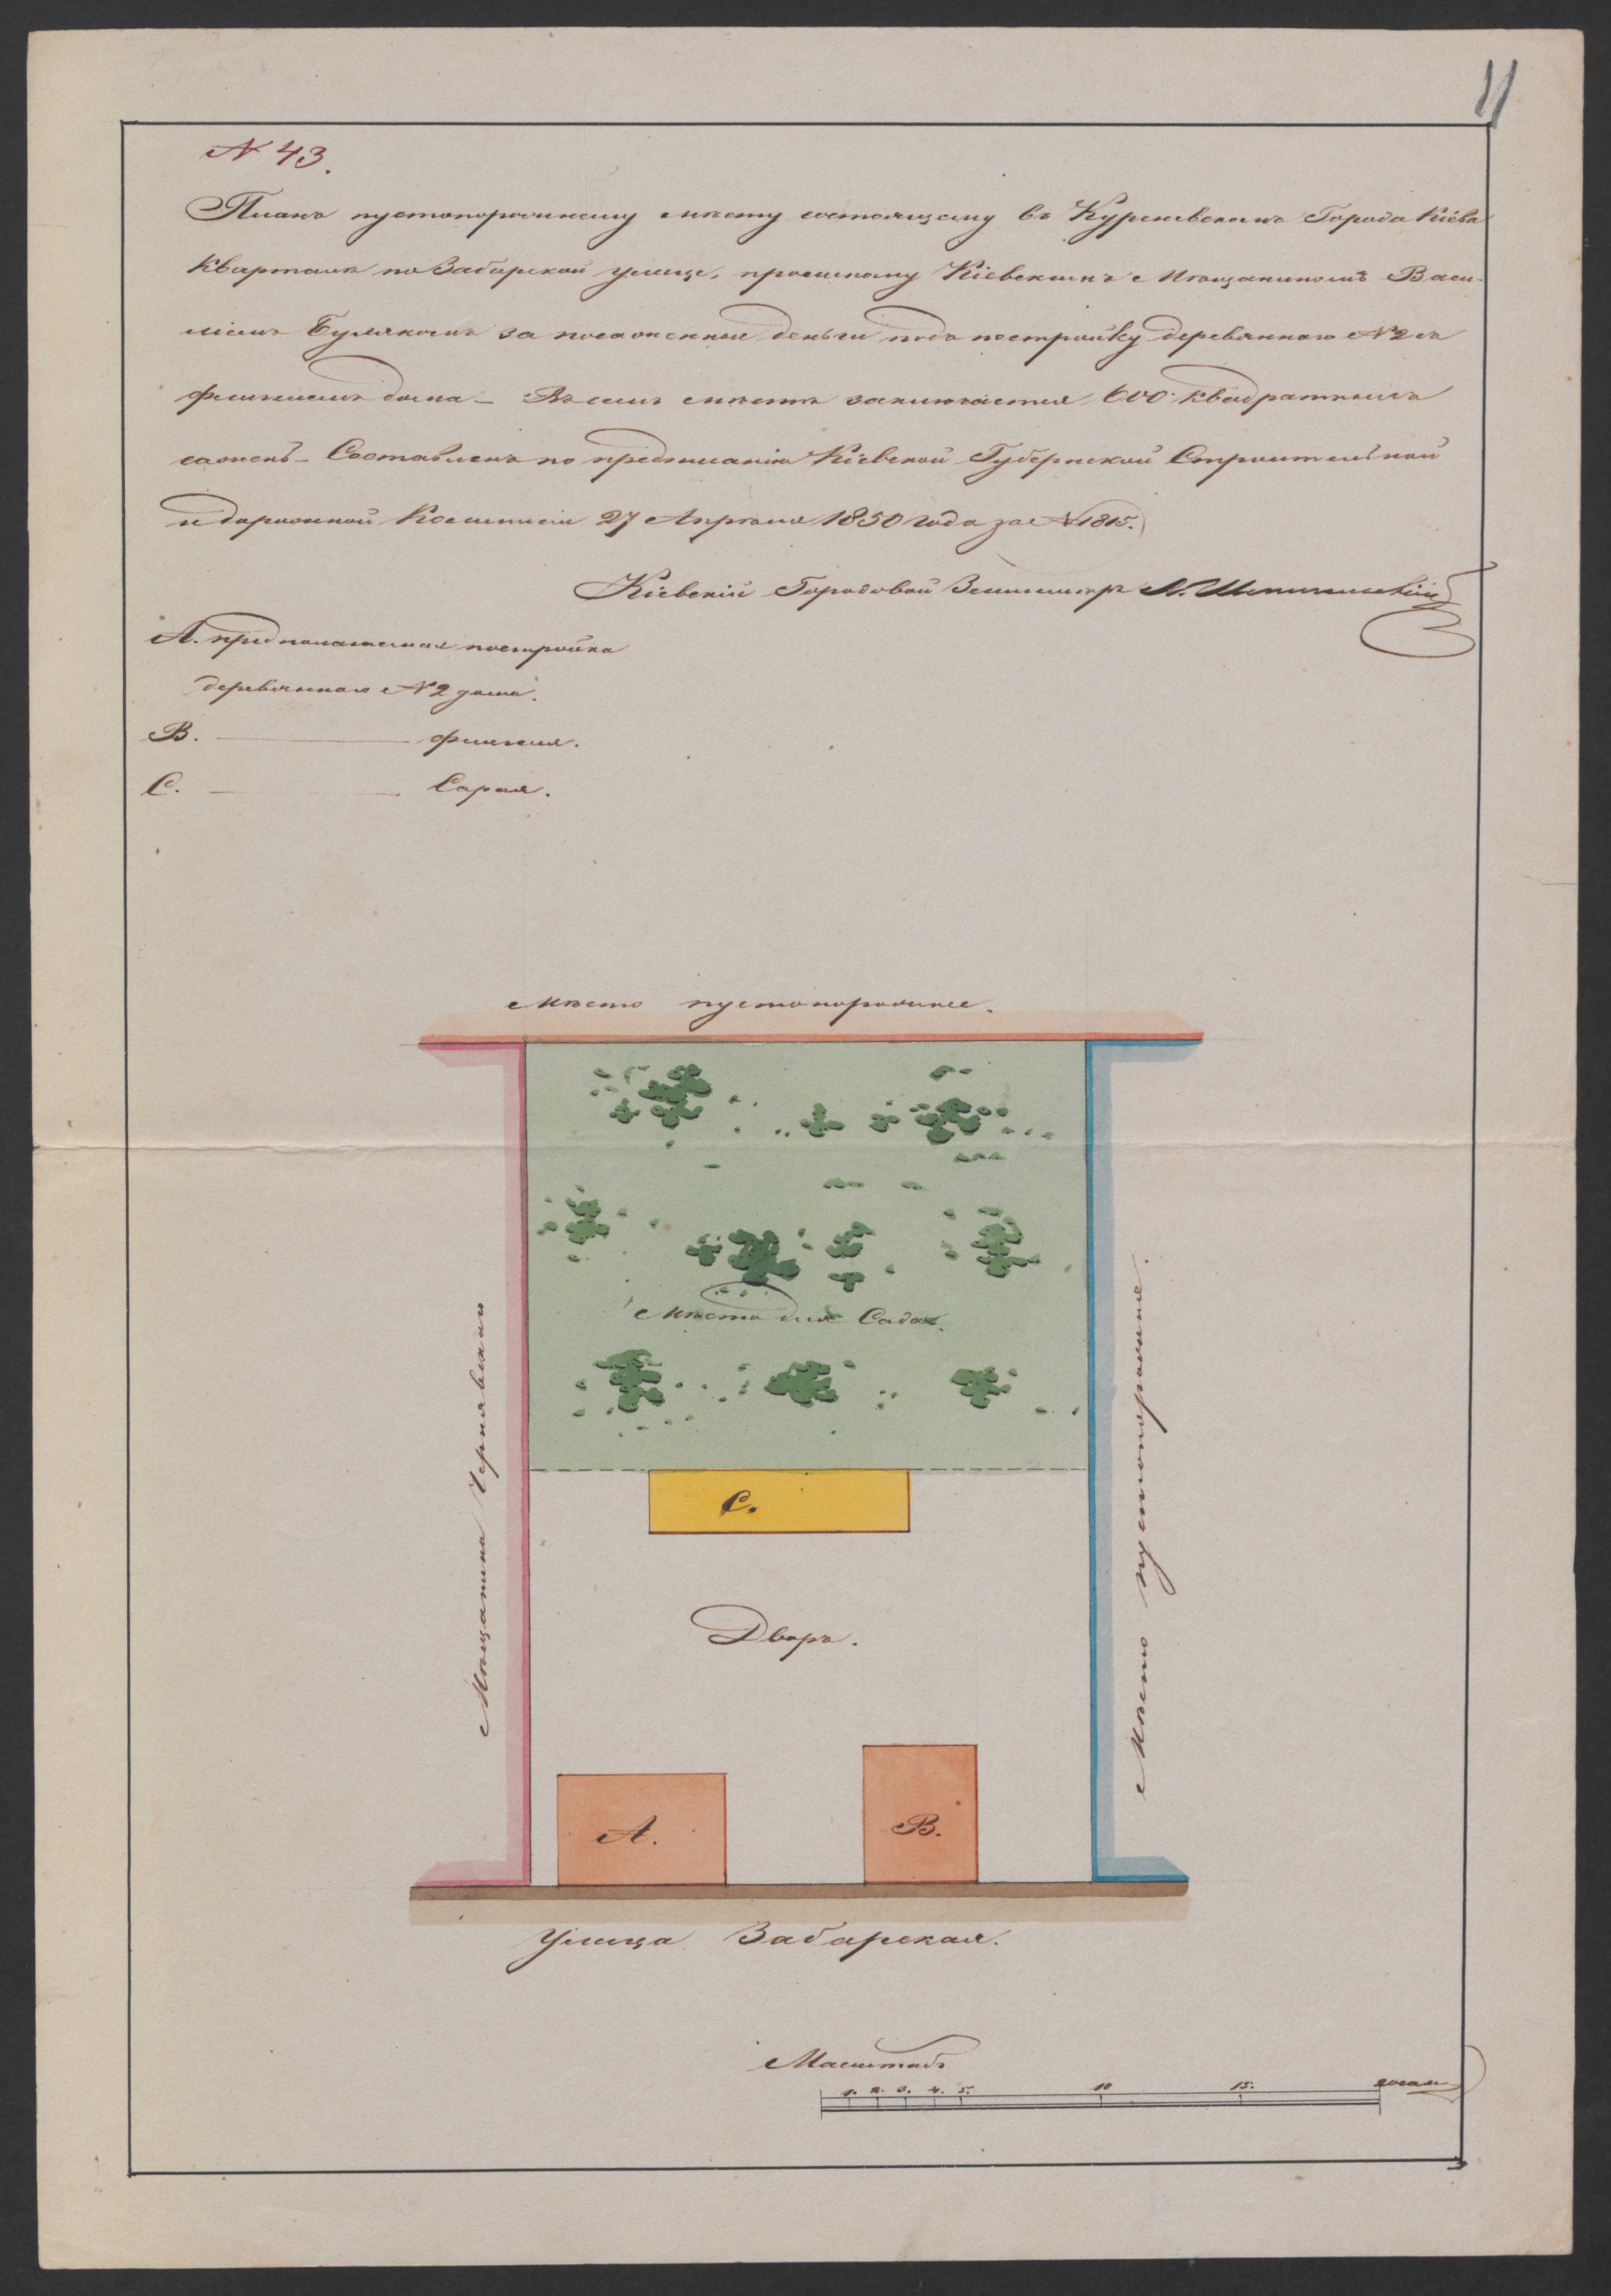 11
№ 43.
Планъ пустопорожнему мѣсту состоящему въ Куреневскомъ Города Кіева
Кварталѣ по Забарской улицѣ, просимому Кіевскимъ Мѣщаниномъ Васи-
ліемъ за положенныя деньги подъ постройку деревяннаго № 2 съ
флигелемъ дома – Въ семъ мѣстѣ заключается 600 квадратныхъ
сажень – Составленъ по предписанію Кіевской Губернской Строительной
и дорожной Коммисіи 27 Апрѣля 1850 года за № 1815.
Кіевскій Городовой Землемѣръ
А. предполагаемая постройка
деревяннаго № 2 дома.
В. ——— флигеля.
С. ——— Сарая.
Мѣсто пустопорожнее.
Мѣщанина Чернявскаго
Мѣсто для Сада.
Мѣсто пустопорожнее.
С.
Дворъ.
А.
В.
Улица Забарская.
Масштабъ
1. 2. 3. 4. 5. 10 15. 20 саж